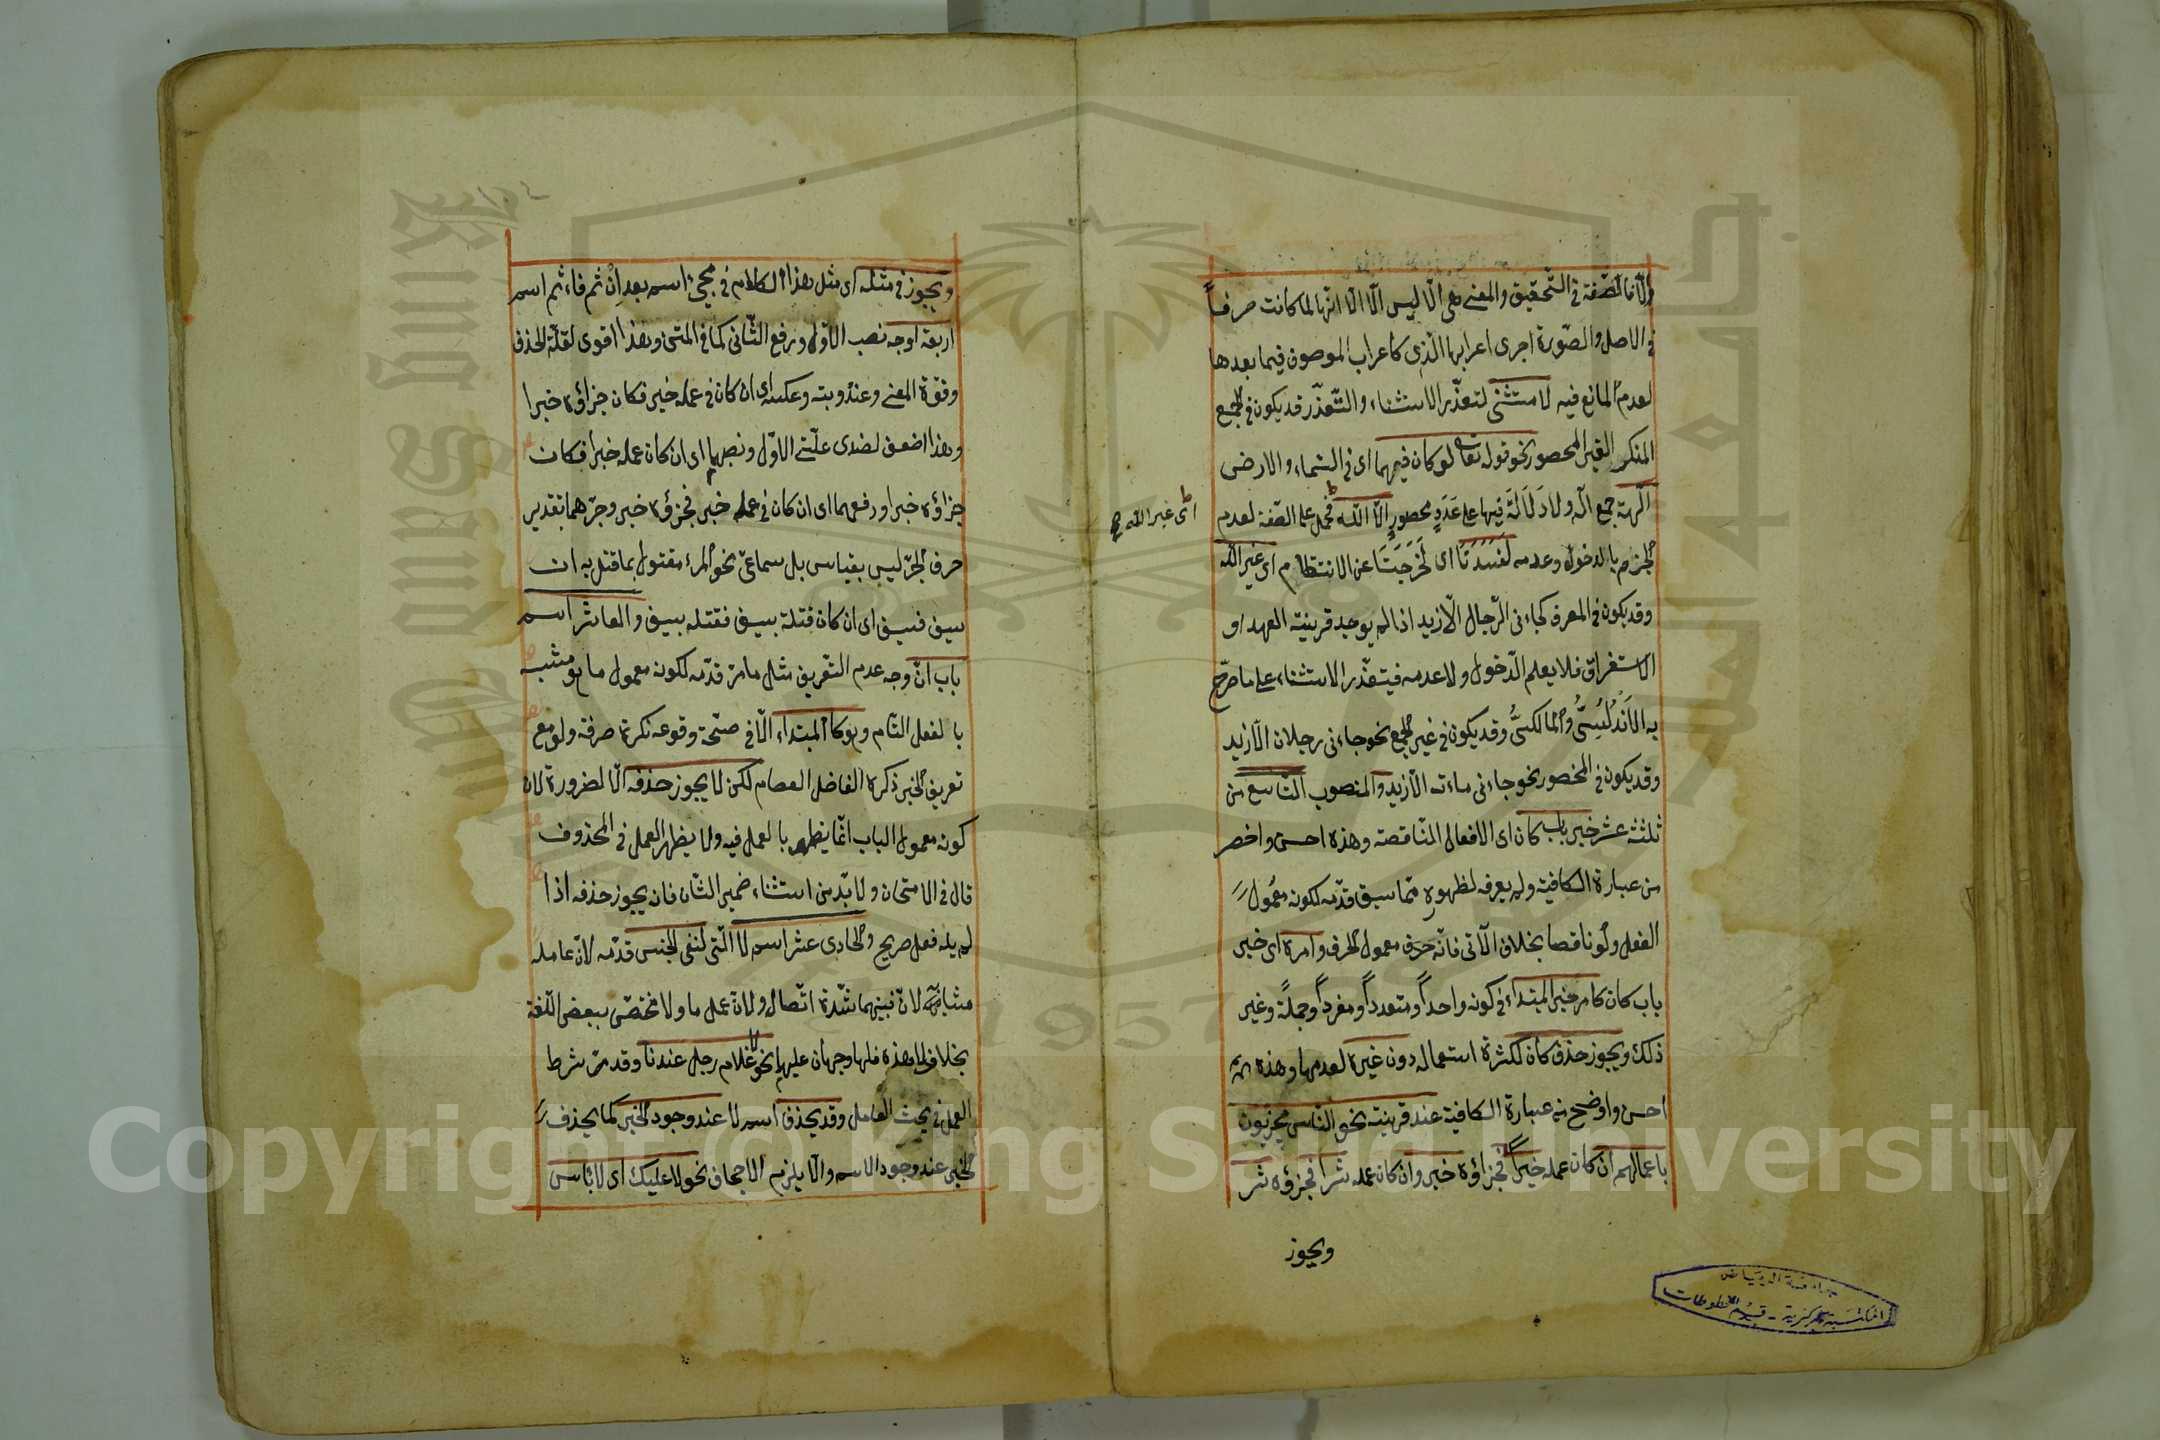 والّا فالصّفة في التّحقيق والمعنى هى الّا ليس الّا الّا انّها لما كانت حرفاً
في الاصل والصّورة اجرى اعرابها الّذى كاعراب الموصوف فيما بعدها
لعدم المانع فيه لا مستثنى لتعذّر الاستثناء والتّعذّر قد يكون في الجمع
المنكر الغير المحصور نحو قوله تعا لو كان فيهما اى في السّماء والارض
الهة جمع اله ولا دَلَالَةَ فيها على عَدَدٍ محصورٍ الّا اللّه فحمل على الصّفة لعدم
الجزم بالدخول وعدمه لفَسَدَتَا اى لَخَرَجَتَا عن الانتظام اى غير اللّه
وقد يكون في المعرف كجاءنى الرّجال الّا زيد اذا لم يوجد قرينة العهد او
الاستغراق فلا يعلم الدّخول ولا عدمه فيتعذّر الاستثناء على ما صرّح
به الاَنْدُلُسِىُّ والمالكىُّ وقد يكون في غير الجمع نحو جاءنى رجلان الّا زيد
وقد يكون في المحصور نحو جاءنى مائة الّا زيد والمنصوب التّاسع من
ثلثة عشر خبر باب كان اى الافعال النّاقصة وهذه احسن واخصر
من عبارة الكافية ولم يعرفه لظهوره ممّا سبق قدّمه لكونه معمول
الفعل ولو ناقصا بخلاف الآتى فانّه معمول الحرف وامره اى خبر
باب كان كامر خبر المبتداء في كونه واحداً ومتعدداً ومفرداً وجملةً وغير
ذلك ويجوز حذف كان لكثرة استعماله دون غيره لعدمها وهذه
احسن واوضح من عبارة الكافية عند قرينة نحو النّاس مجزيون
باعمالهم ان كان عمله خيراً فجزاؤه خير وان كان عمله شرا فجزؤه شر
اى غير اللّه
ويجوز
جامعة الرياض
المكتبة المركزية - قسم المخطوطات
١٠٤
ويجوز في مثله اى مثل هذا الكلام في مجئ اسم بعد اِنْ ثم فاء ثم اسم
اربعة اوجه نصب الاوّل ورفع الثّانى كما في المتن وهذا اقوى لقلّة الحذف
وقوّة المعنى وعذوبته وعكسه اى ان كان في عمله خير فكان جزاؤه خيرا
وهذا اضعف لضدى علّتى الاوّل ونصبهما اى ان كان عمله خيرا فكان
جزاؤه خيرا ورفعهما اى ان كان في عمله خير فجزؤه خير وجرّهما بتقدير
حرف الجرّ ليس بقياس بل سماعىّ نحو المرء مقتول بما قتل به ان
سيف فسيف اى ان كان قتله بسيف فقتله بسيف والعاشر اسم
باب انّ وجه عدم التّعريف مثل ما مرّ قدّمه لكونه معمول ما هو مشبه
بالفعل التّام وهو كالمبتداء الّا في صحّة وقوعه نكرة صرفة ولو مع
تعريف الخبر ذكره الفاضل العصام لكن لا يجوز حذفه الّا لضرورة لانّ
كونه معمول الباب انّما يظهر بالعمل فيه ولا يظهر العمل في المحذوف
قال في الامتحان ولا بدّ من استثناء ضمير الشّان فانه يجوز حذفه اذا
لم يله فعل صريح والحادى عشر اسم لا الّتى لنفى الجنس قدّمه لانّ عامله
مشابه لانّ فبينهما شدّة اتّصال ولانّ عمل ما ولا مختصّ ببعض اللّغة
بخلاف هذه فلها وجهان عليهما نحو لا غلام رجل عندنا وقد مرّ شرط
العمل في بحث العامل وقد يحذف اسم لا عند وجود الخبر كما يحذف
الخبر عند وجود الاسم والّا يلزم الاجحاف نحو لا عليك اى لا بأس